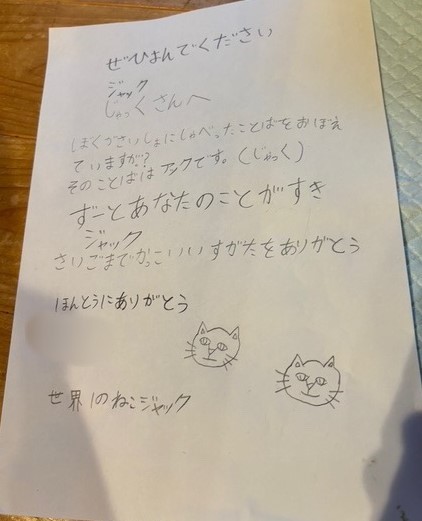 ぜひよんでください
ジャック
じゃっくさんへ
ぼくがさいしょにしゃべったことばをおぼえ
ていますか?
そのことばはアックです。(じゃっく)
ずーとあなたのことがすき
ジャック
さいごまでかっこいいすがたをありがとう
ほんとうにありがとう
世界1のねこジャック